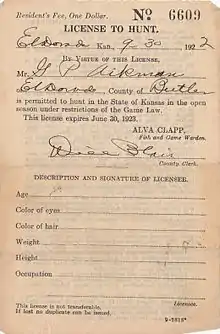 Resident's Fee, One Dollar. No 6609
LICENSE TO HUNT.
El Dorado Kan., 9-30 1922
BY VIRTUE OF THIS LICENSE,
Mr. G P Aikman
El Dorado, County of Butler
is permitted to hunt in the State of Kansas in the open
season under restrictions of the Game Law.
This license expires June 30, 1923.
ALVA CLAPP,
Fish and Game Warden.
Blair
County Clerk.
DESCRIPTION AND SIGNATURE OF LICENSEE.
Age
Color of eyes
Color of hair
Weight
Height
Occupation
Licensee.
This license is not transferable.
If lost no duplicate can be issued.